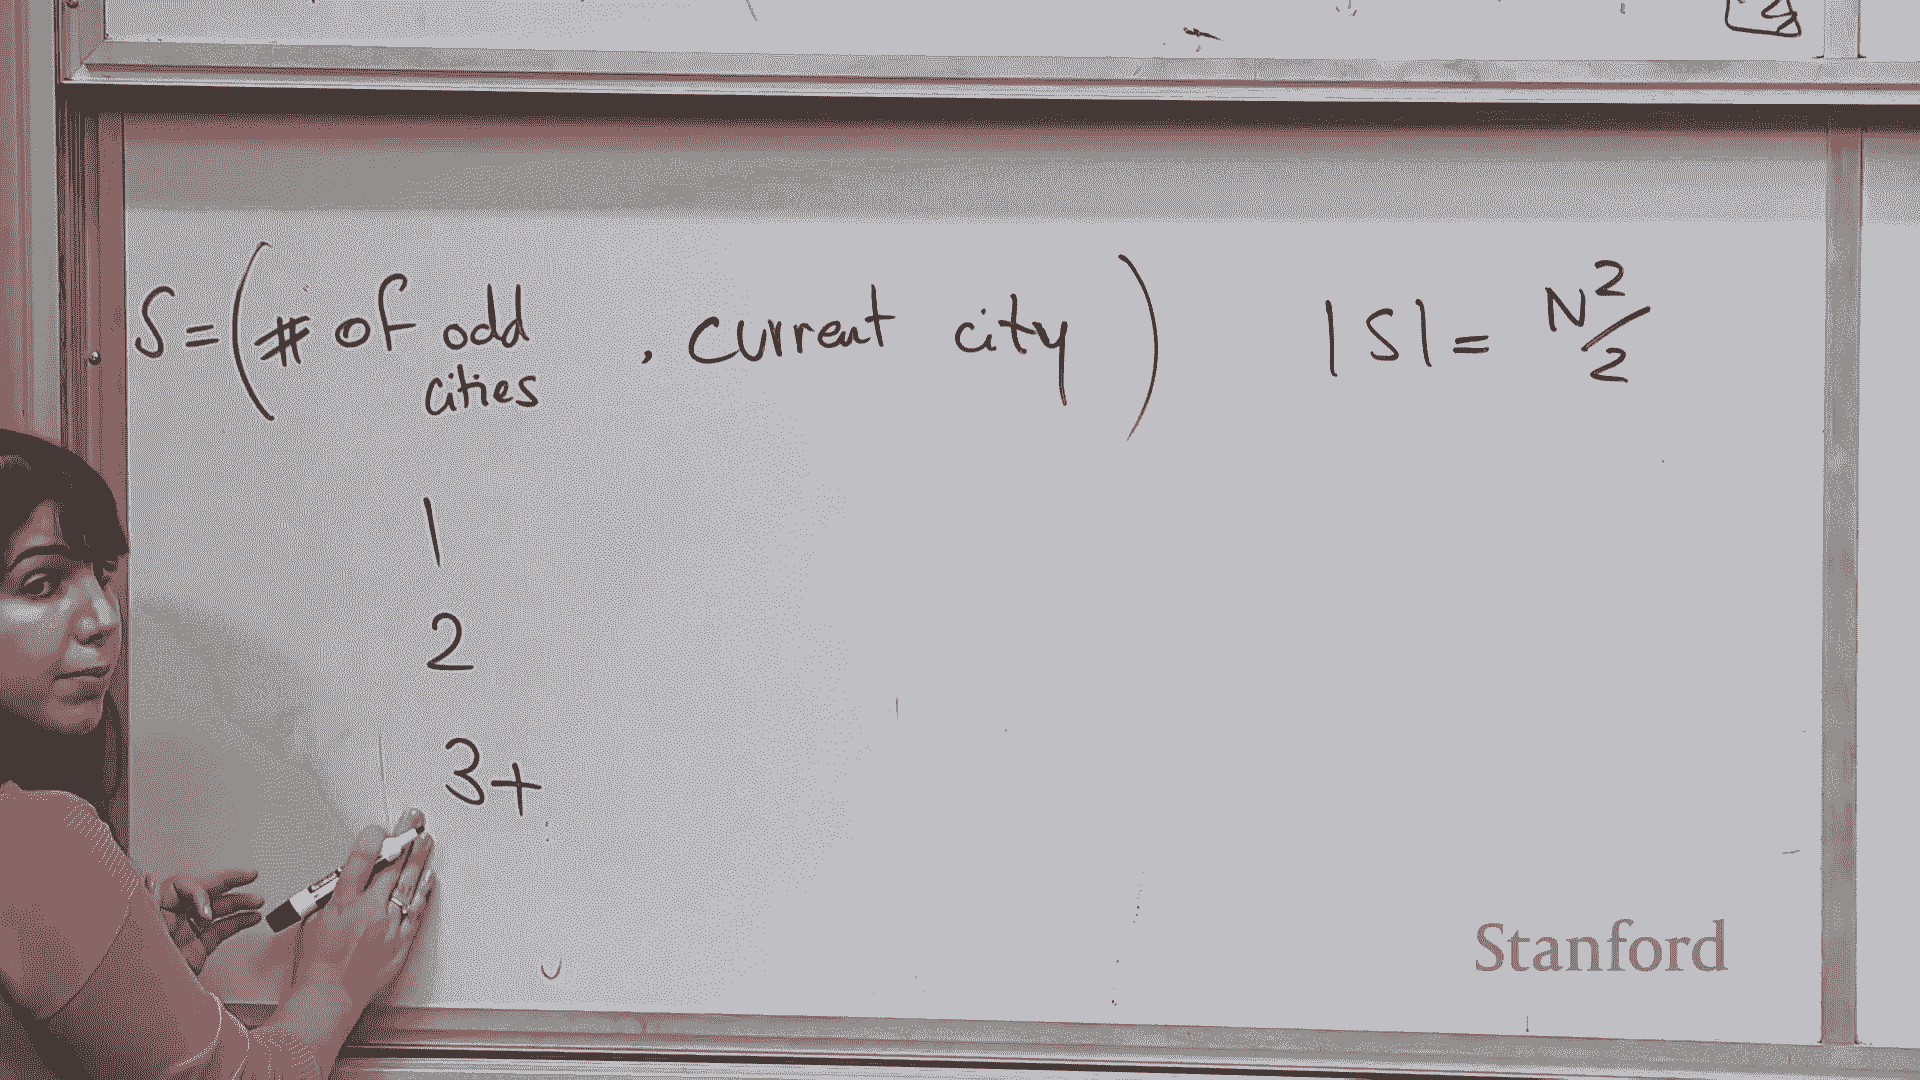 S = (# of odd cities , current city) |S| = N²/2
1
2
3+
Stanford